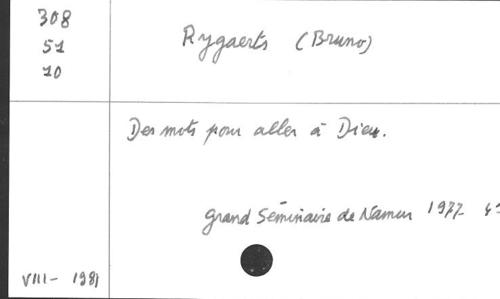 308
51
10
Rygaerts (Bruno)
Des mots pour aller à Dieu.
Grand Séminaire de Namur 1977
VIII - 1981